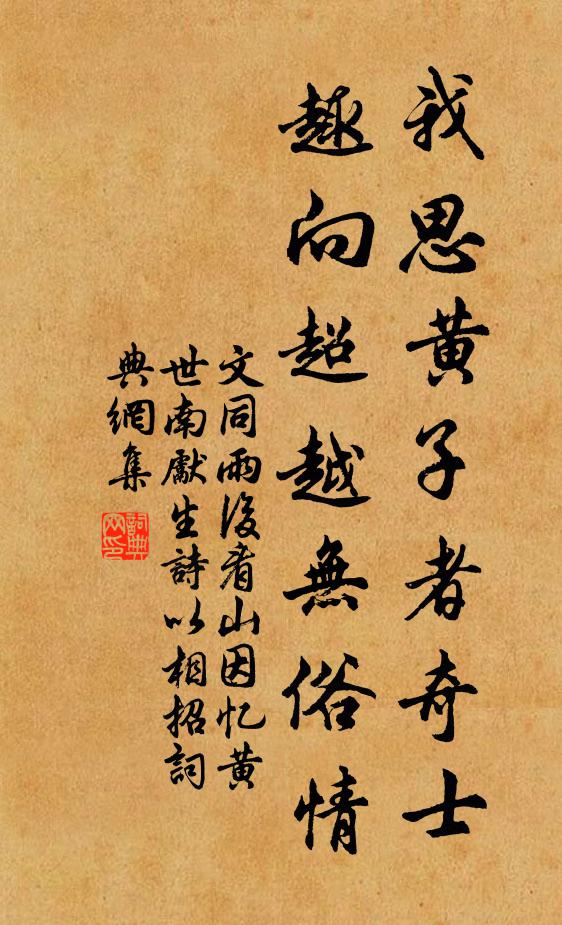 我思黄子者奇士
趣向超越無俗情
文同雨後看山因忆黄
世南獻生詩以相招詞
典網集
詞典
网印